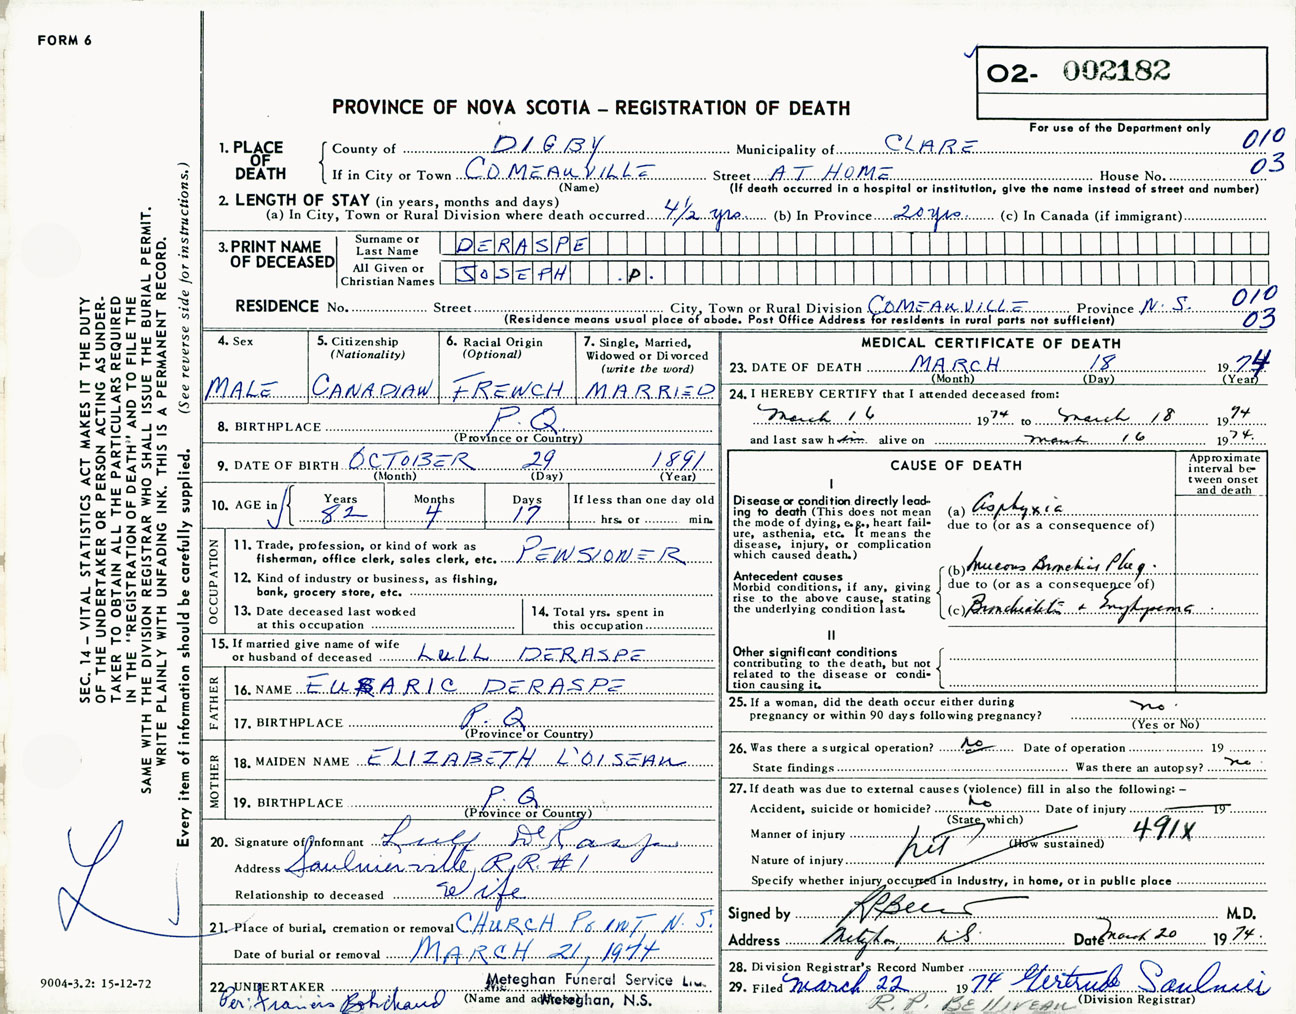 FORM 6
O2- 002182
PROVINCE OF NOVA SCOTIA – REGISTRATION OF DEATH
For use of the Department only
010
03
1. PLACE OF DEATH
County of DIGBY Municipality of CLARE
If in City or Town COMEAUVILLE Street AT HOME House No.
(Name) (If death occurred in a hospital or institution, give the name instead of street and number)
2. LENGTH OF STAY (in years, months and days)
(a) In City, Town or Rural Division where death occurred 4½ yrs. (b) In Province 20 yrs. (c) In Canada (if immigrant)
3. PRINT NAME OF DECEASED
Surname or Last Name DERASPE
All Given or Christian Names JOSEPH .P.
RESIDENCE No. Street City, Town or Rural Division COMEAUVILLE Province N.S. 010
(Residence means usual place of abode. Post Office Address for residents in rural parts not sufficient) 03
4. Sex
MALE
5. Citizenship
(Nationality)
CANADIAN
6. Racial Origin
(Optional)
FRENCH
7. Single, Married,
Widowed or Divorced
(write the word)
MARRIED
8. BIRTHPLACE P.Q.
(Province or Country)
9. DATE OF BIRTH OCTOBER 29 1891
(Month) (Day) (Year)
10. AGE in
Years Months Days If less than one day old
82 4 17 hrs. or min.
OCCUPATION
11. Trade, profession, or kind of work as
fisherman, office clerk, sales clerk, etc. PENSIONER
12. Kind of industry or business, as fishing,
bank, grocery store, etc.
13. Date deceased last worked
at this occupation
14. Total yrs. spent in
this occupation
15. If married give name of wife
or husband of deceased LULL DERASPE
FATHER
16. NAME EUSARIC DERASPE
17. BIRTHPLACE P.Q
(Province or Country)
MOTHER
18. MAIDEN NAME ELIZABETH L'OISEAU
19. BIRTHPLACE P.Q
(Province or Country)
20. Signature of Informant
Address Saulnierville, R.R. #1
Relationship to deceased Wife
21. Place of burial, cremation or removal CHURCH POINT, N.S.
Date of burial or removal MARCH 21, 1974
22. UNDERTAKER Meteghan Funeral Service
Per: Francis Robichaud (Name and address) Meteghan, N.S.
MEDICAL CERTIFICATE OF DEATH
23. DATE OF DEATH MARCH 18 1974
(Month) (Day) (Year)
24. I HEREBY CERTIFY that I attended deceased from:
March 16 1974 to March 18 1974
and last saw him alive on March 16 1974.
CAUSE OF DEATH
Approximate interval between onset and death
I
Disease or condition directly leading to death (This does not mean the mode of dying, e.g., heart failure, asthenia, etc. It means the disease, injury, or complication which caused death.)
(a) Asphyxia
due to (or as a consequence of)
Antecedent causes
Morbid conditions, if any, giving rise to the above cause, stating the underlying condition last.
(b) Mucous Bronchial Plug.
due to (or as a consequence of)
(c) Bronchiolitis + Emphysema
II
Other significant conditions
contributing to the death, but not related to the disease or condition causing it.
25. If a woman, did the death occur either during
pregnancy or within 90 days following pregnancy? no.
(Yes or No)
26. Was there a surgical operation? no Date of operation 19
State findings Was there an autopsy? no.
27. If death was due to external causes (violence) fill in also the following: –
Accident, suicide or homicide? no Date of injury 19
(State which)
Manner of injury 491X
(How sustained)
Nature of injury
Specify whether injury occurred in industry, in home, or in public place
Signed by M.D.
Address Meteghan, N.S. Date March 20 1974.
28. Division Registrar's Record Number
29. Filed March 22 1974 Gertrude Saulnier
(Division Registrar)
R. P. BELLIVEAU
SEC. 14 – VITAL STATISTICS ACT MAKES IT THE DUTY
OF THE UNDERTAKER OR PERSON ACTING AS UNDER-
TAKER TO OBTAIN ALL THE PARTICULARS REQUIRED
IN THE "REGISTRATION OF DEATH" AND TO FILE THE
SAME WITH THE DIVISION REGISTRAR WHO SHALL ISSUE THE BURIAL PERMIT.
WRITE PLAINLY WITH UNFADING INK. THIS IS A PERMANENT RECORD.
Every item of information should be carefully supplied. (See reverse side for instructions.)
9004-3.2: 15-12-72